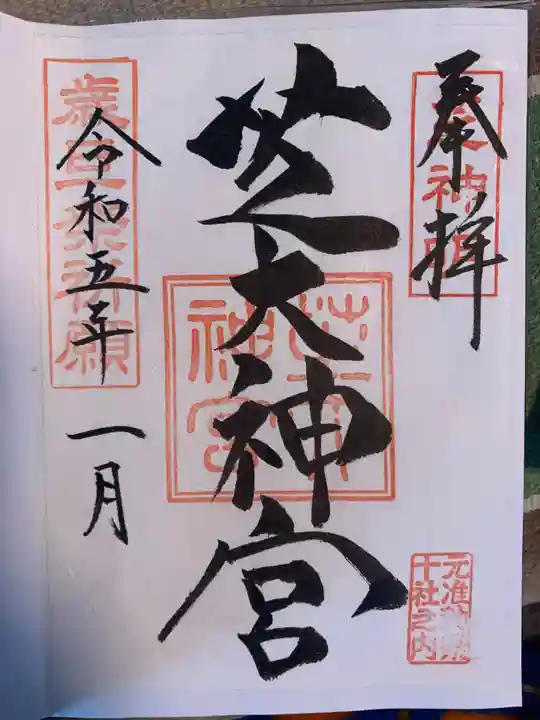 奉拝
芝大神宮
令和五年 一月
芝大神宮
元准勅祭
十社之内